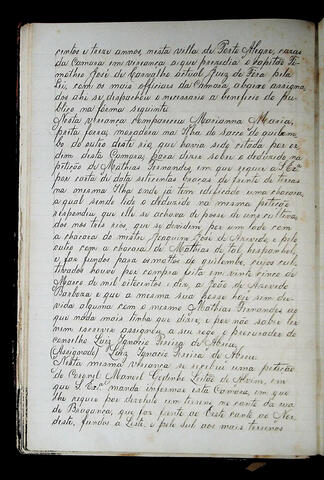 centos e treze annos, nesta villa de Porto Alegre, cazas
da Camara em vereança a que prezedio o Capitão Ti-
mothio José de Carvalho actual Juiz de Fora pela
Lei, com os mais officiaes da Camara, abaixo assigna-
dos ahi se despachou o necessario a beneficio do pu-
blico na forma seguinte
Nesta vereança compareceu Marianna Maria,
preta forra, moradora na Ilha do sacco do quilom-
bo do outro deste rio, que havia sido citada por or-
dem desta Camara, para dizer sobre o deduzido na
petição de Mathias Fernandes, em que requer a
por carta de data setecentas braças de frente de terras
na mesma Ilha onde já tem edificado uma chacara,
a qual sendo lido o deduzido na mesma petição
respendeu que elle se achava de posse de uns cultiva-
dos nos tais rios, que se dividem por um lado com
a chacara do mestre Joaquim José de Azevedo, e pelo
outro com a chacara de Mathias de tal, hespanhol,
e faz fundos para os mattos do quilombo, cujos cul-
tivados houve por compra feita em vinte cinco de
Março de mil oitocentos e dez, a João de Azevedo
Barboza e que a mesma sua posse hoje sem du-
vida alguma com o mesmo Mathias Fernandes ao
que nada mais tinha que dizer, e por não saber ler
nem escrever assignou a seu rogo o procurador do
conselho Luiz Ignacio Pereira de Abreu.
(Assignado) Luiz Ignacio Pereira de Abreu
Nesta mesma vereança se recebeu uma petição
do Coronel Manoel Godinho Leitão de Abrim, em
que S. Ex.ª manda informe esta Camara, em que
lhe requer por devoluto um terreno no canto da rua
de Bragança, que faz frente ao Oeste canto ao Nor-
deste, fundos a Leste, e pelo sul aos mais terrenos